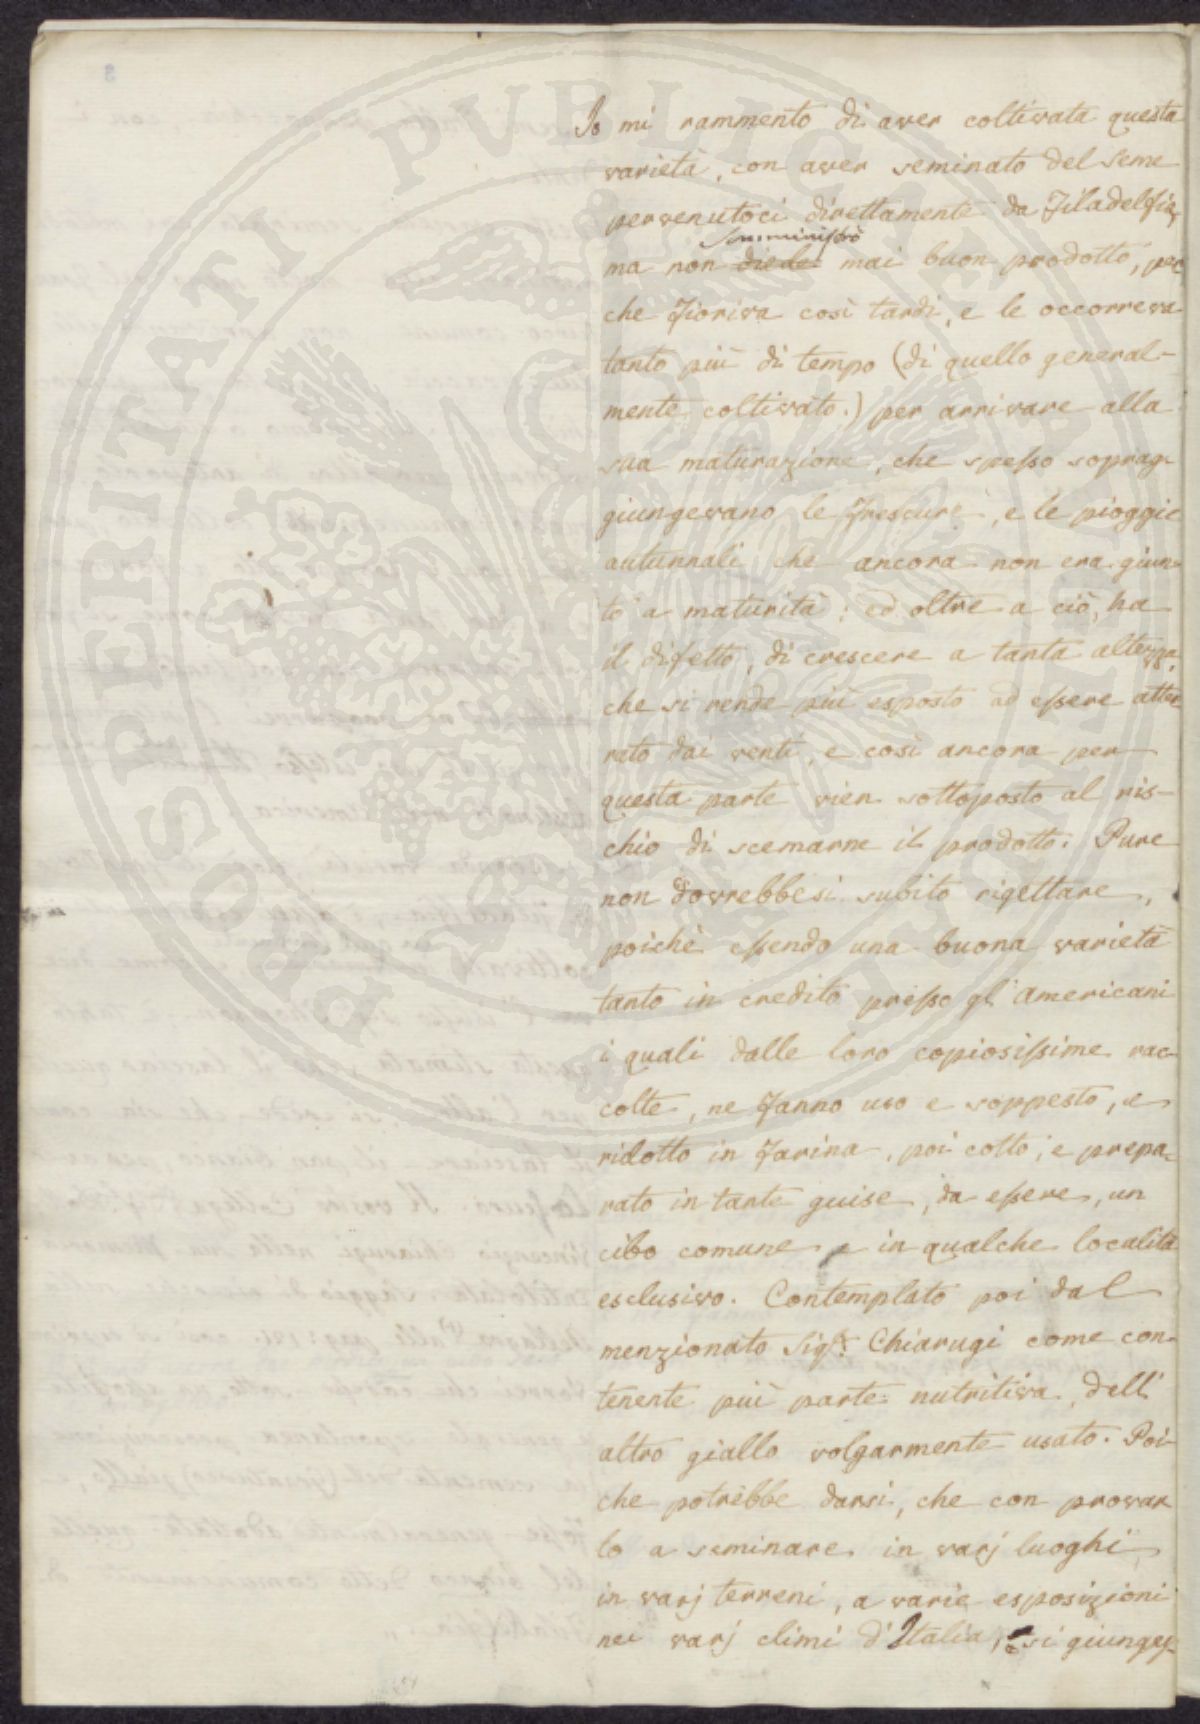 PROSPERITATI PUBLICAE AUGENDAE
Io mi rammento di aver coltivata questa
varietà, con aver seminato del seme
pervenutoci direttamente da Filadelfia,
somministrò
ma non diede mai buon prodotto, per
che fioriva così tardi, e le occorreva
tanto più di tempo (di quello general-
mente coltivato.) per arrivare alla
sua maturazione, che spesso soprag-
giungevano le frescure, e le pioggie
autunnali che ancora non era giun-
to a maturità: ed oltre a ciò, ha
il difetto, di crescere a tanta altezza,
che si rende più esposto ad essere atter
rato dai venti, e così ancora per
questa parte vien sottoposto al ris-
chio di scemarne il prodotto. Pure
non dovrebbesi subito rigettare,
poichè essendo una buona varietà
tanto in credito presso gl'americani
i quali dalle loro copiosissime rac-
colte, ne fanno uso e soppesto, e
ridotto in farina, poi cotto, e prepa-
rato in tante guise, da essere, un
cibo comune e in qualche località
esclusivo. Contemplato poi dal
menzionato Sigr. Chiarugi come con-
tenente più parte nutritiva, dell'
altro giallo volgarmente usato. Poi-
che potrebbe darsi, che con provar
lo a seminare in varj luoghi
in varj terreni, a varie esposizioni
nei varj climi d'Italia, si giunges-